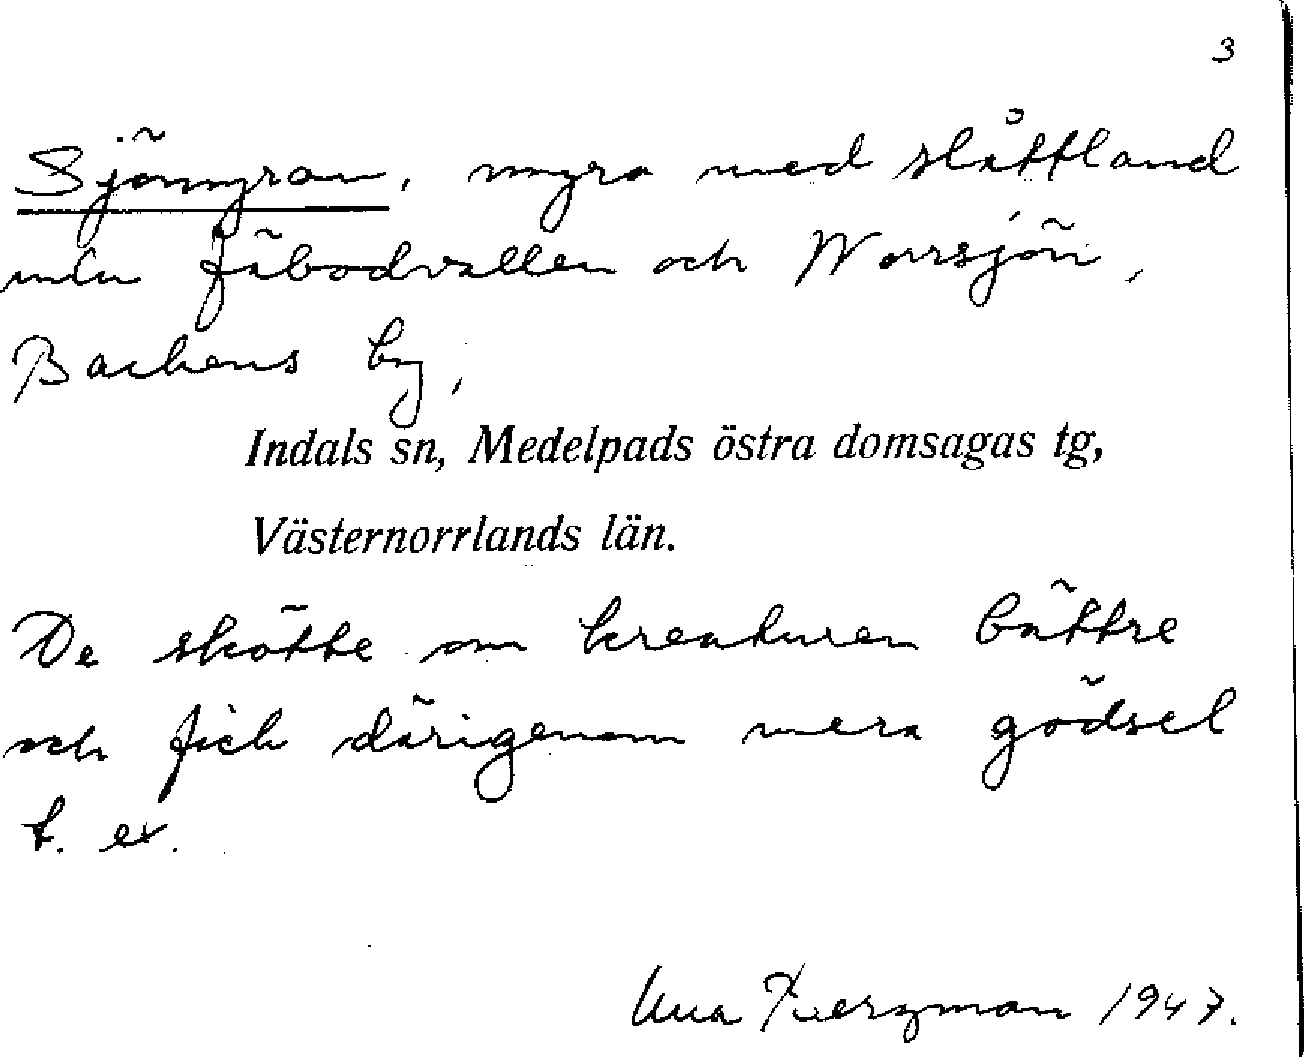 3
Sjömyran, myra med slåttland
mln fäbodvallen och Norrsjön,
Backens by,
Indals sn, Medelpads östra domsagas tg,
Västernorrlands län.
De skötte om kreaturen bättre
och fick därigenom mera gödsel
t. ex.
1947.